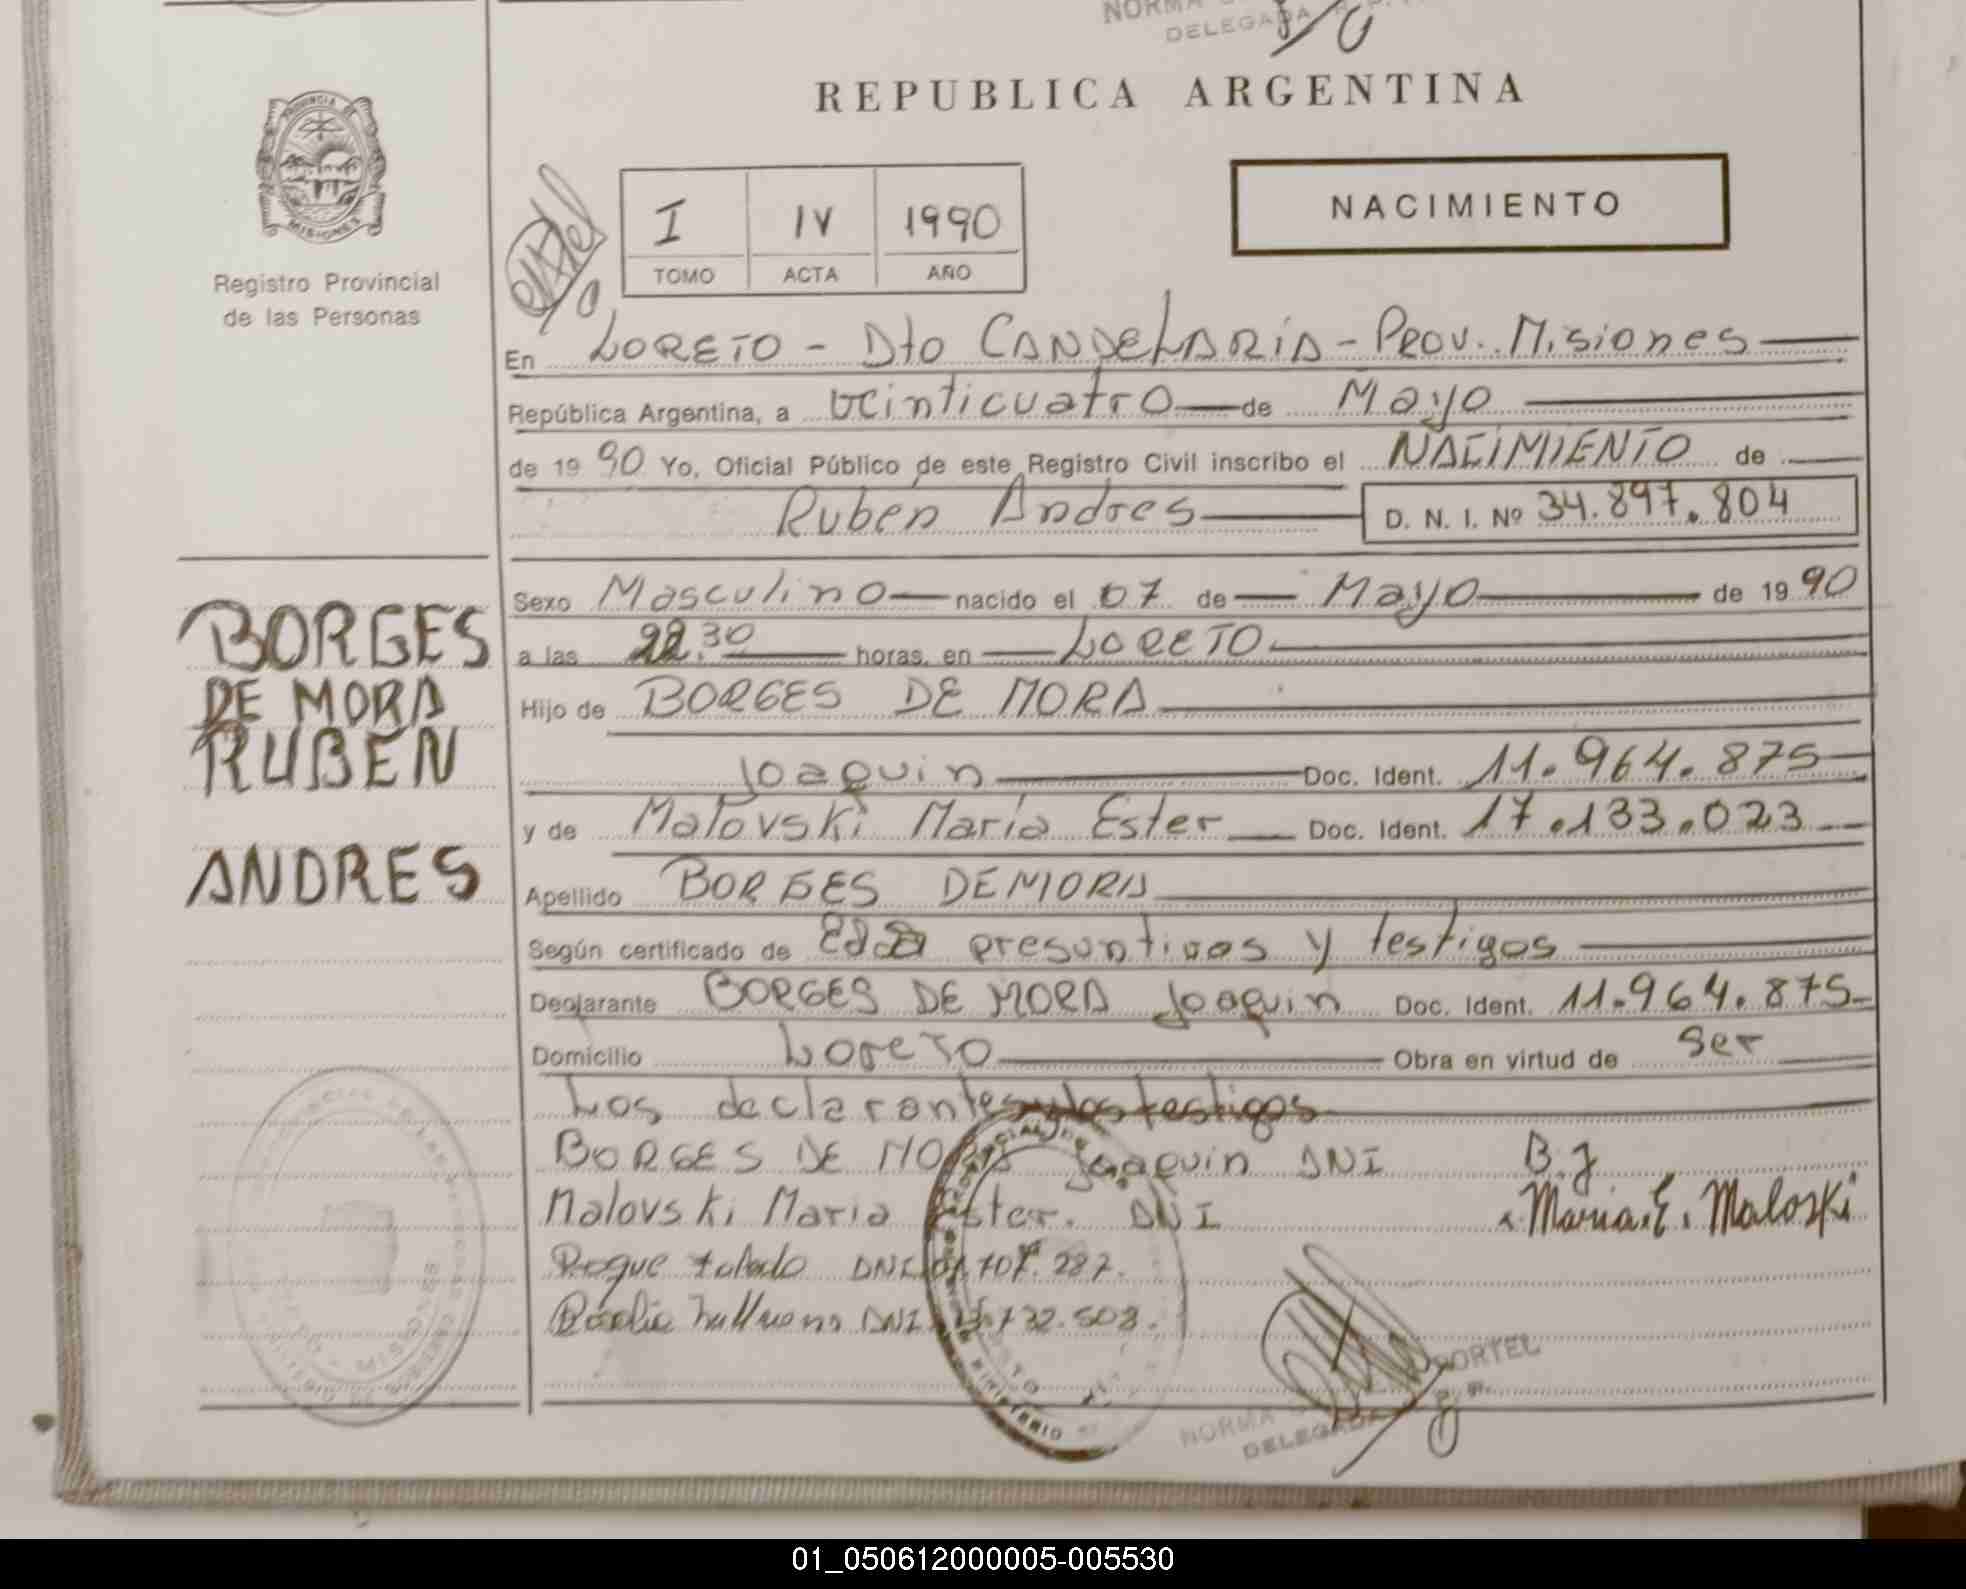 NORMA
DELEGADA
REPUBLICA ARGENTINA
PROVINCIA DE
MISIONES
Registro Provincial
de las Personas
I IV 1990
TOMO ACTA AÑO
NACIMIENTO
En LORETO - Dto CANDELARIA - Prov. Misiones
República Argentina, a veinticuatro de Mayo
de 1990 Yo, Oficial Público de este Registro Civil inscribo el NACIMIENTO de
Ruben Andres D. N. I. Nº 34.897.804
Sexo Masculino nacido el 07 de Mayo de 1990
a las 22.30 horas, en LORETO
Hijo de BORGES DE MORA
Joaquin Doc. Ident. 11.964.875
y de Malovski Maria Ester Doc. Ident. 17.133.023
Apellido BORGES DE MORA
Según certificado de Eda presuntivas y testigos
Declarante BORGES DE MORA Joaquin Doc. Ident. 11.964.875
Domicilio Loreto Obra en virtud de ser
Los declarantes y los testigos
BORGES DE MORA Joaquin DNI B.J
Malovski Maria Ester. DNI Maria.E. Maloski
Roque DNI 287.
DNI 732.503.
BORGES
DE MORA
RUBEN
ANDRES
MISIONES
NORMA PORTEL
DELEGADA
01_050612000005-005530